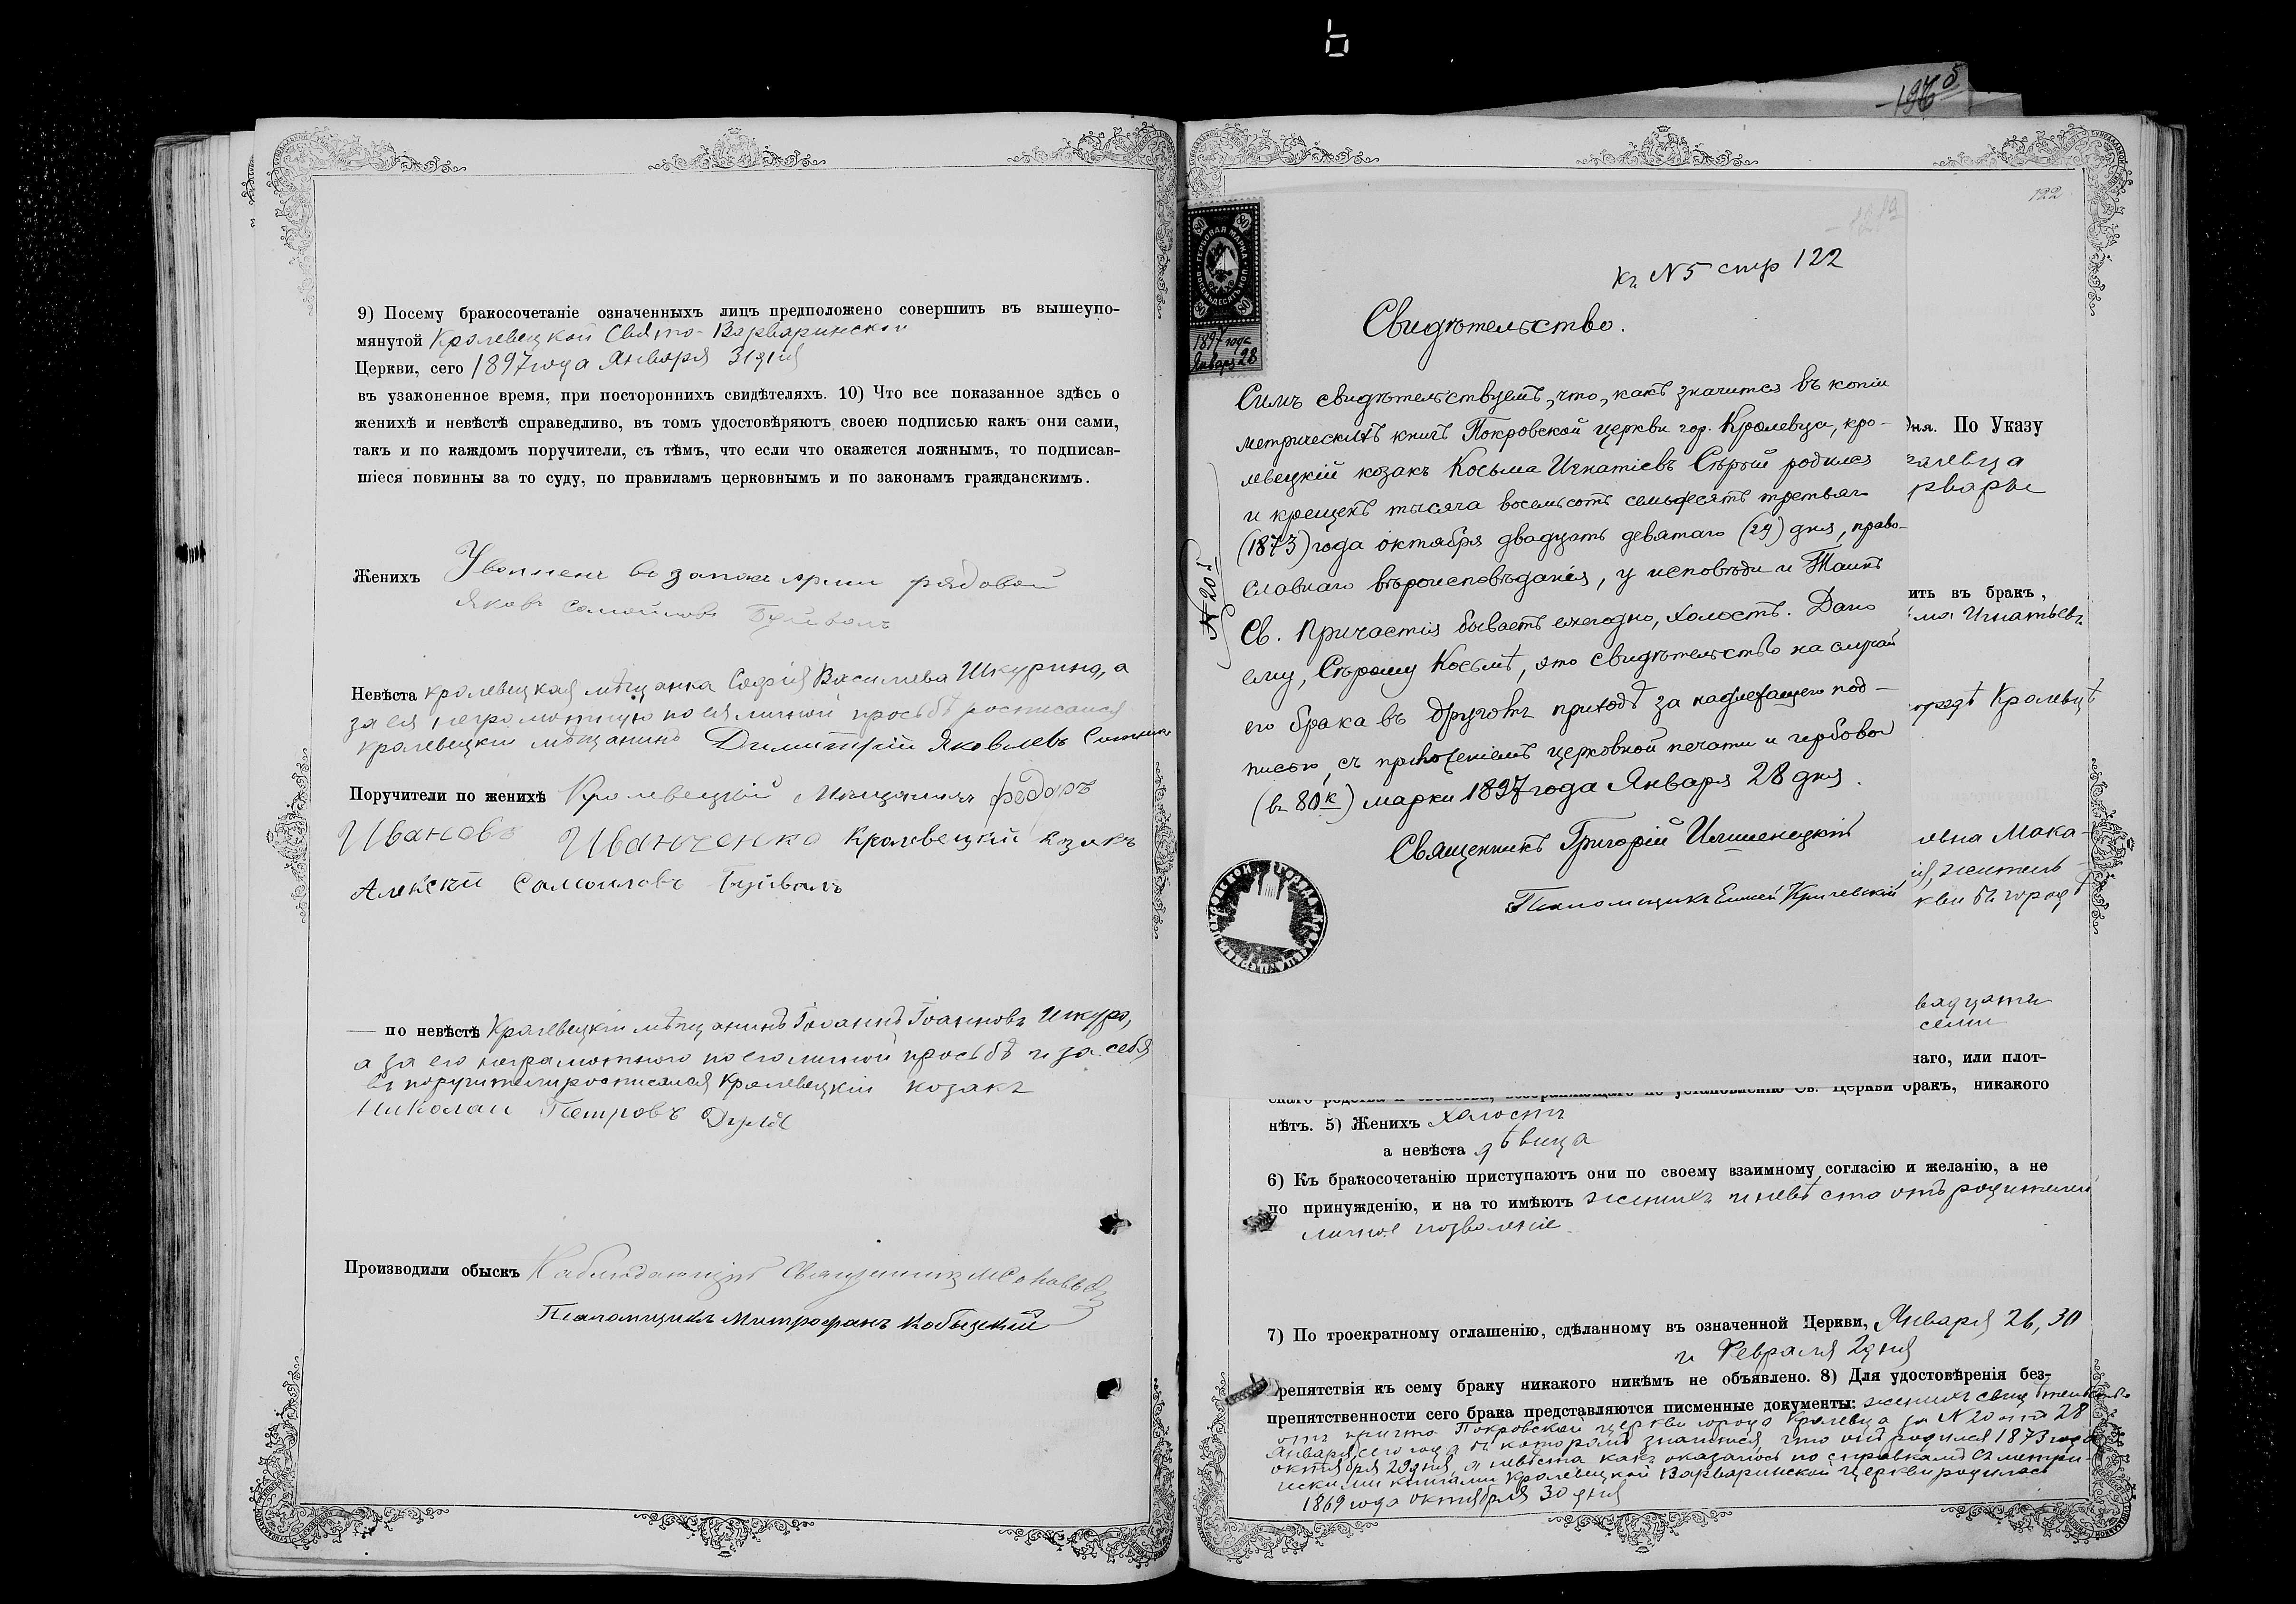 9) Посему бракосочетаніе означенныхъ лицъ предположено совершить въ вышеупо-
мянутой Кролевецкой Свято-Варваринской
Церкви, сего 1897 года Января 31 дня
въ узаконенное время, при постороннихъ свидѣтеляхъ. 10) Что все показанное здѣсь о
женихѣ и невѣстѣ справедливо, въ томъ удостовѣряютъ своею подписью какъ они сами,
такъ и по каждомъ поручители, съ тѣмъ, что если что окажется ложнымъ, то подписав-
шіеся повинны за то суду, по правиламъ церковнымъ и по законамъ гражданскимъ.
Женихъ рядовой
Яковъ Самойловъ Буйволъ
Невѣста кролевецкая мѣщанка Софія Васильева Шкурина, а
за ея неграмотную по ея личной просьбѣ росписался
кролевецкій мѣщанинъ Димитрій Яковлевъ
Поручители по женихѣ Кролевецкій Мѣщанинъ Федоръ
Ивановъ Иванченко Кролевецкій козакъ
Алексѣй Самоиловъ Буйволъ
— по невѣстѣ Кролевецкій мѣщанинъ Іоаннъ Іоанновъ Шкура,
а за его неграмотного по его личной просьбѣ и за себя
въ поручители росписался Кролевецкій козакъ
Николай Петровъ
Производили обыскъ Наблюдающій Священникъ
Псаломщикъ Митрофанъ
- 197 б
122
80 80
ГЕРБОВАЯ МАРКА
ВОСЕМЬДЕСЯТЪ КОП.
80 80
1897 года
Января 28
Къ N 5 стр 122
Свидѣтельство.
Симъ свидѣтельствуемъ, что, какъ значится въ копіи
метрическихъ книгъ Покровской церкви гор. Кролевца, кро-
левецкій козакъ Косьма Игнатіевъ Сѣрый родился
и крещенъ тысяча восемьсотъ семьдесятъ третьяго
(1873) года октября двадцать девятаго (29) дня, право-
славнаго вѣроисповѣданія, у исповѣди и Таинъ
Св. Причастія бываетъ ежегодно, холостъ. Дано
ему, Сѣрому Косьмѣ, это свидѣтельство на случай
его брака въ другомъ приходѣ за надлежащею под-
писью, съ приложеніемъ церковной печати и гербовой
(въ 80 к) марки 1897 года Января 28 дня.
N 20
Священникъ Григорій
Псаломщикъ Кричевскій
дня. По Указу
ролевца
рвары
ить въ бракъ,
ма Игнатьевъ
городѣ Кролевцѣ
овна Мака-
жител
кви въ город
вадцати
семи
наго, или плот-
скаго родства и свойства, возбраняющаго по установленію Св. Церкви бракъ, никакого
нѣтъ. 5) Женихъ холостъ
а невѣста дѣвица
6) Къ бракосочетанію приступаютъ они по своему взаимному согласію и желанію, а не
по принужденію, и на то имѣютъ женихъ и невѣста отъ родителей
личное позволеніе
7) По троекратному оглашенію, сдѣланному въ означенной Церкви, Января 26, 30
и Февраля 2 дня
репятствія къ сему браку никакого никѣмъ не объявлено. 8) Для удостовѣренія без-
препятственности сего брака представляются писменные документы: женихъ свидѣтельство
отъ причта Покровской церкви города Кролевца за N 20 отъ 28
Января сего года въ которомъ значится, что онъ родился 1873 года
октября 29 дня, а невѣста какъ оказалось по справкамъ съ метри-
ческими книгами Кролевецкой Варваринской церкви родилась
1869 года октября 30 дня